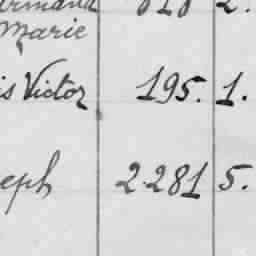 Marie
is Victor 195. 1.
eph 2281 5.